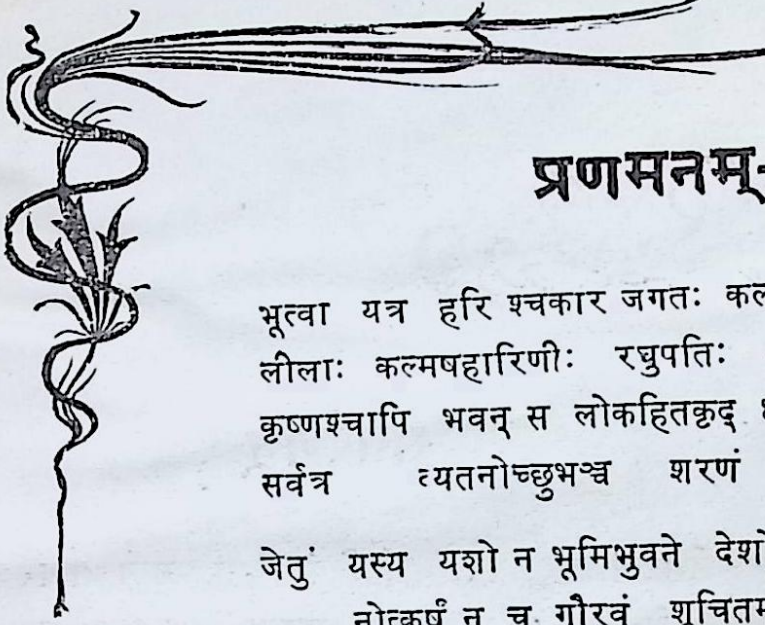 प्रणमनम्-
भूत्वा यत्र हरि श्चकार जगतः
लीलाः कल्मषहारिणीः रघुपतिः
कृष्णश्चापि भवन् स लोकहितकृद्
सर्वत्र व्यतनोच्छुभञ्च शरणं
जेतुं यस्य यशो न भूमिभुवने
नोत्कर्षं न च गौरवं